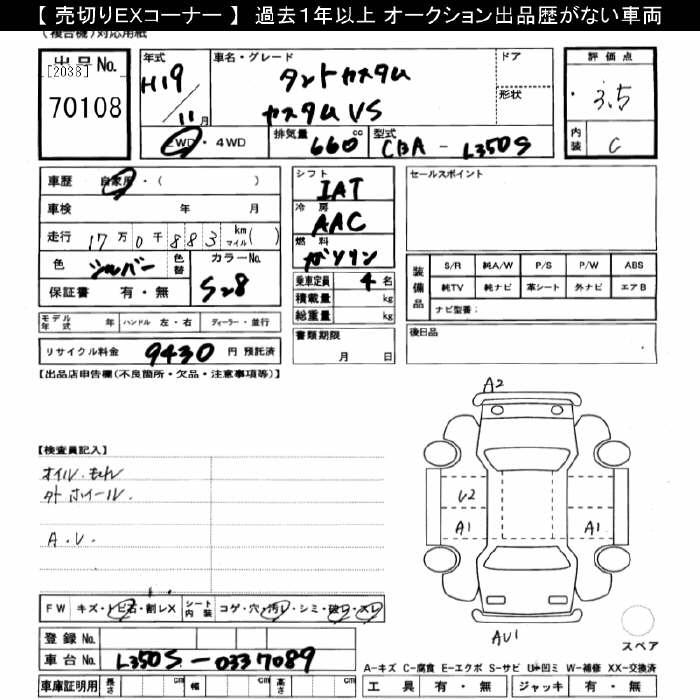 【 売切りEXコーナー 】 過去1年以上 オークション出品歴がない車両
(複合機)対応用紙
出品No.
[2038]
70108
年式
H19
11月
車名・グレード
タントカスタム
カスタムVS
ドア
形状
評価点
3.5
内装
C
2WD・4WD
排気量
660cc
型式
CBA - L350S
車歴 自家用・( )
車検 年 月
走行 17万0千883 km マイル( )
色 シルバー 色替
カラーNo.
S28
保証書 有・無
シフト
IAT
冷房
AAC
燃料
ガソリン
乗車定員 4名
積載量 kg
総重量 kg
書類期限
月 日
セールスポイント
装備品
S/R 純A/W P/S P/W ABS
純TV 純ナビ 革シート 外ナビ エアB
ナビ型番:
後日品
モデル年式 年 ハンドル 左・右 ディーラー・並行
リサイクル料金 9430 円 預託済
【出品店申告欄(不良箇所・欠品・注意事項等)】
【検査員記入】
オイル
外 ホイール.
A.U.
A2
U2
A1
A1
AU1
スペア
FW キズ・トビ石・割レX シート内装 コゲ・穴・汚レ・シミ・破レ・スレ
登録No.
車台No. L350S-0337089
車庫証明用 長さ cm 幅 cm 高さ cm
A-キズ C-腐食 E-エクボ S-サビ U-凹ミ W-補修 XX-交換済
工具 有・無 ジャッキ 有・無